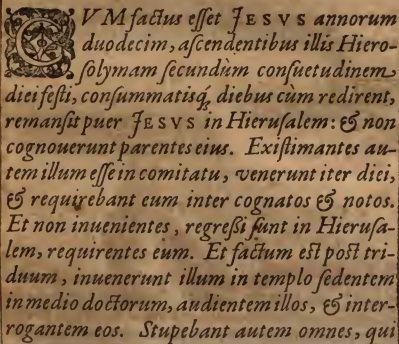 CVM factus esset JESVS annorum
duodecim, ascendentibus illis Hiero-
solymam secundùm consuetudinem
diei festi, consummatisq́; diebus cùm redirent,
remansit puer JESVS in Hierusalem: & non
cognouerunt parentes eius. Existimantes au-
tem illum esse in comitatu, venerunt iter diei,
& requirebant eum inter cognatos & notos.
Et non inuenientes, regressi sunt in Hierusa-
lem, requirentes eum. Et factum est post tri-
duum, inuenerunt illum in templo sedentem
in medio doctorum, audientem illos, & inter-
rogantem eos. Stupebant autem omnes, qui